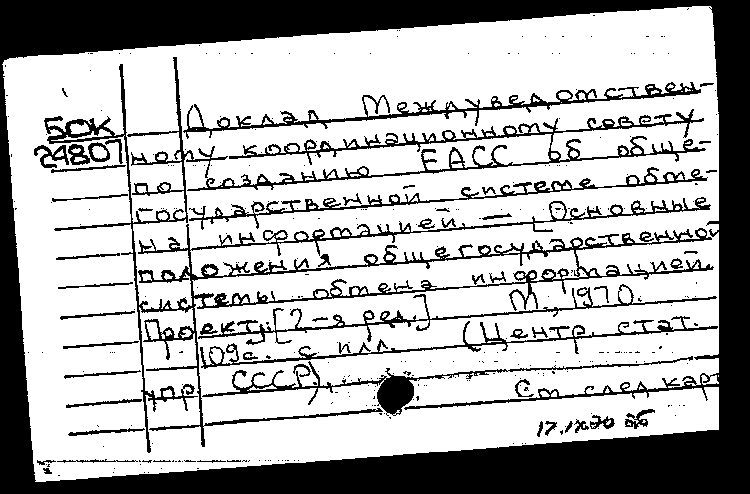 Доклад Междуведомствен-
БОК
24807
ному координационному совету
по созданию ЕАСС об обще-
государственной системе обме-
на информацией. — [Основные
положения общегосударственной
системы обмена информацией.
Проект. [2-я ред.]. М., 1970.
109с. с илл. (Центр. стат.
упр. СССР).
См след карт
17.IX.70